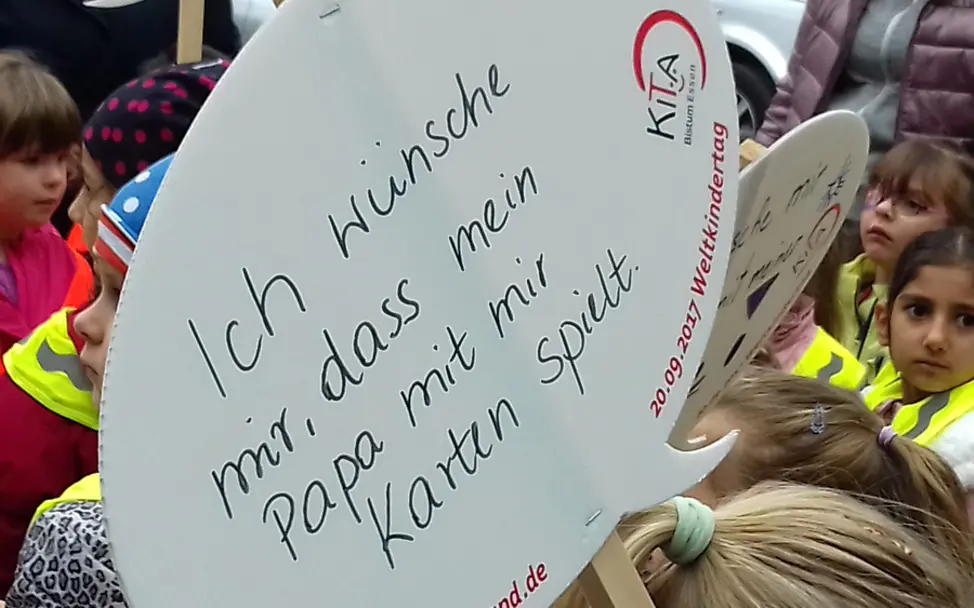 Ich wünsche
mir, dass mein
Papa mit mir
Karten spielt.
KiTA
Bistum Essen
20.09.2017 Weltkindertag
nd.de
mir